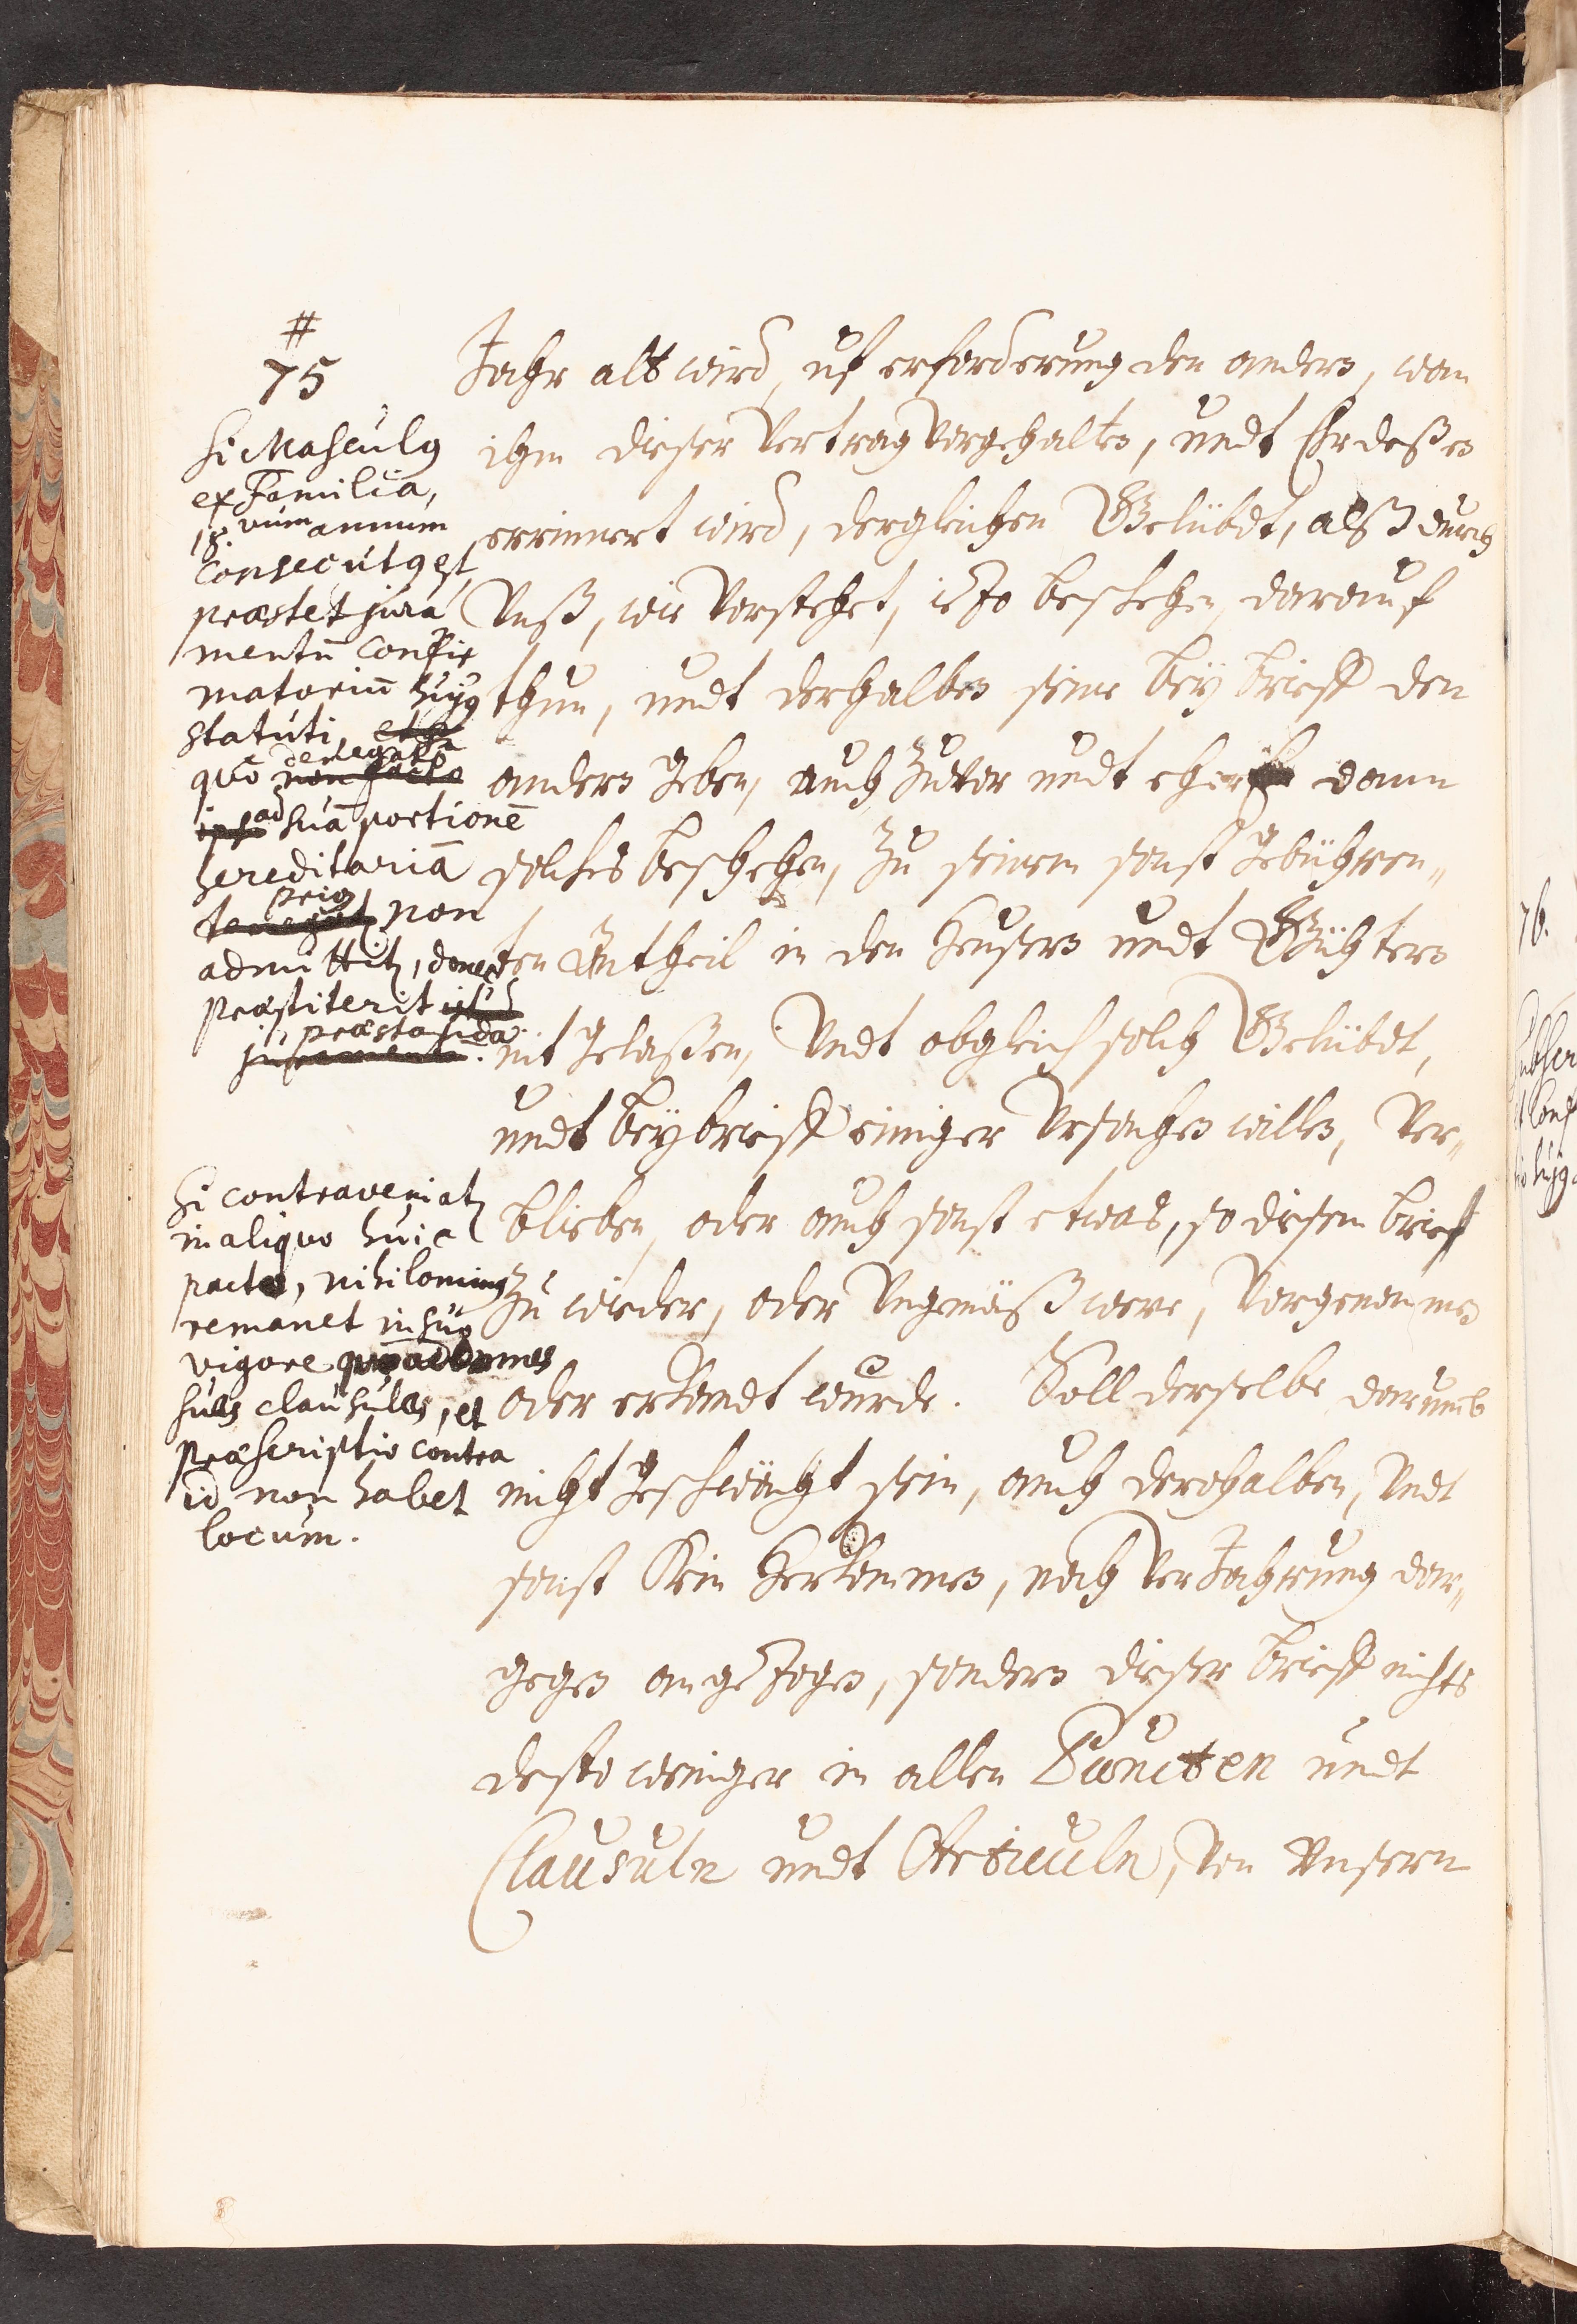 #
75
Si Masculg
ex Familia,
18 vum annum
consecutg est,
præstet jura
mentū confir
matoriū hujg
statuti,
quō denegatō
ad suā portionē
hereditariā
prig non
admittitz, donec
præstiterit
præstanda.
Si contraveniatz
in aliquo huic
pacto, nihiloming
remanet in suo
vigore quoad omnes
suas clausulas, et
præscriptio contra
id non habet
locum.
Jahr alt wird, uf erforderung den andern, wan
ihm dieser Vertrag Vorgehalten, undt Er deßen
errinnert wird, dergleichen Gelübdt, alß durch
Unß, wie Vorstehet, itzo beschehen, darauf
thun, undt derhalben seine beybrieff den
andern Geben, auch Zuvor undt eher dann
solches beschehen, Zu seinem sonst Gebühren„
ten Antheil in den Heusern undt Gühtern
nit Gelaßen, Undt obgleich solch Gelübdt,
undt beybrieff einiger Ursachen willen, Ver„
blieben, oder auch sonst etwas, so diesem brief
Zu wieder, oder Ungmäß were, Vorgenommen
oder erkandt wurde. Soll derselbe darumb
nicht Geschwächt sein, auch derohalben, Undt
sonst Kein Herkommen, noch VerJahrung dar„
gegen angezogen, sondern dieser brieff nichts
desto weniger in allen Puncten undt
Clausuln undt Articuln, Von Unsern
76.